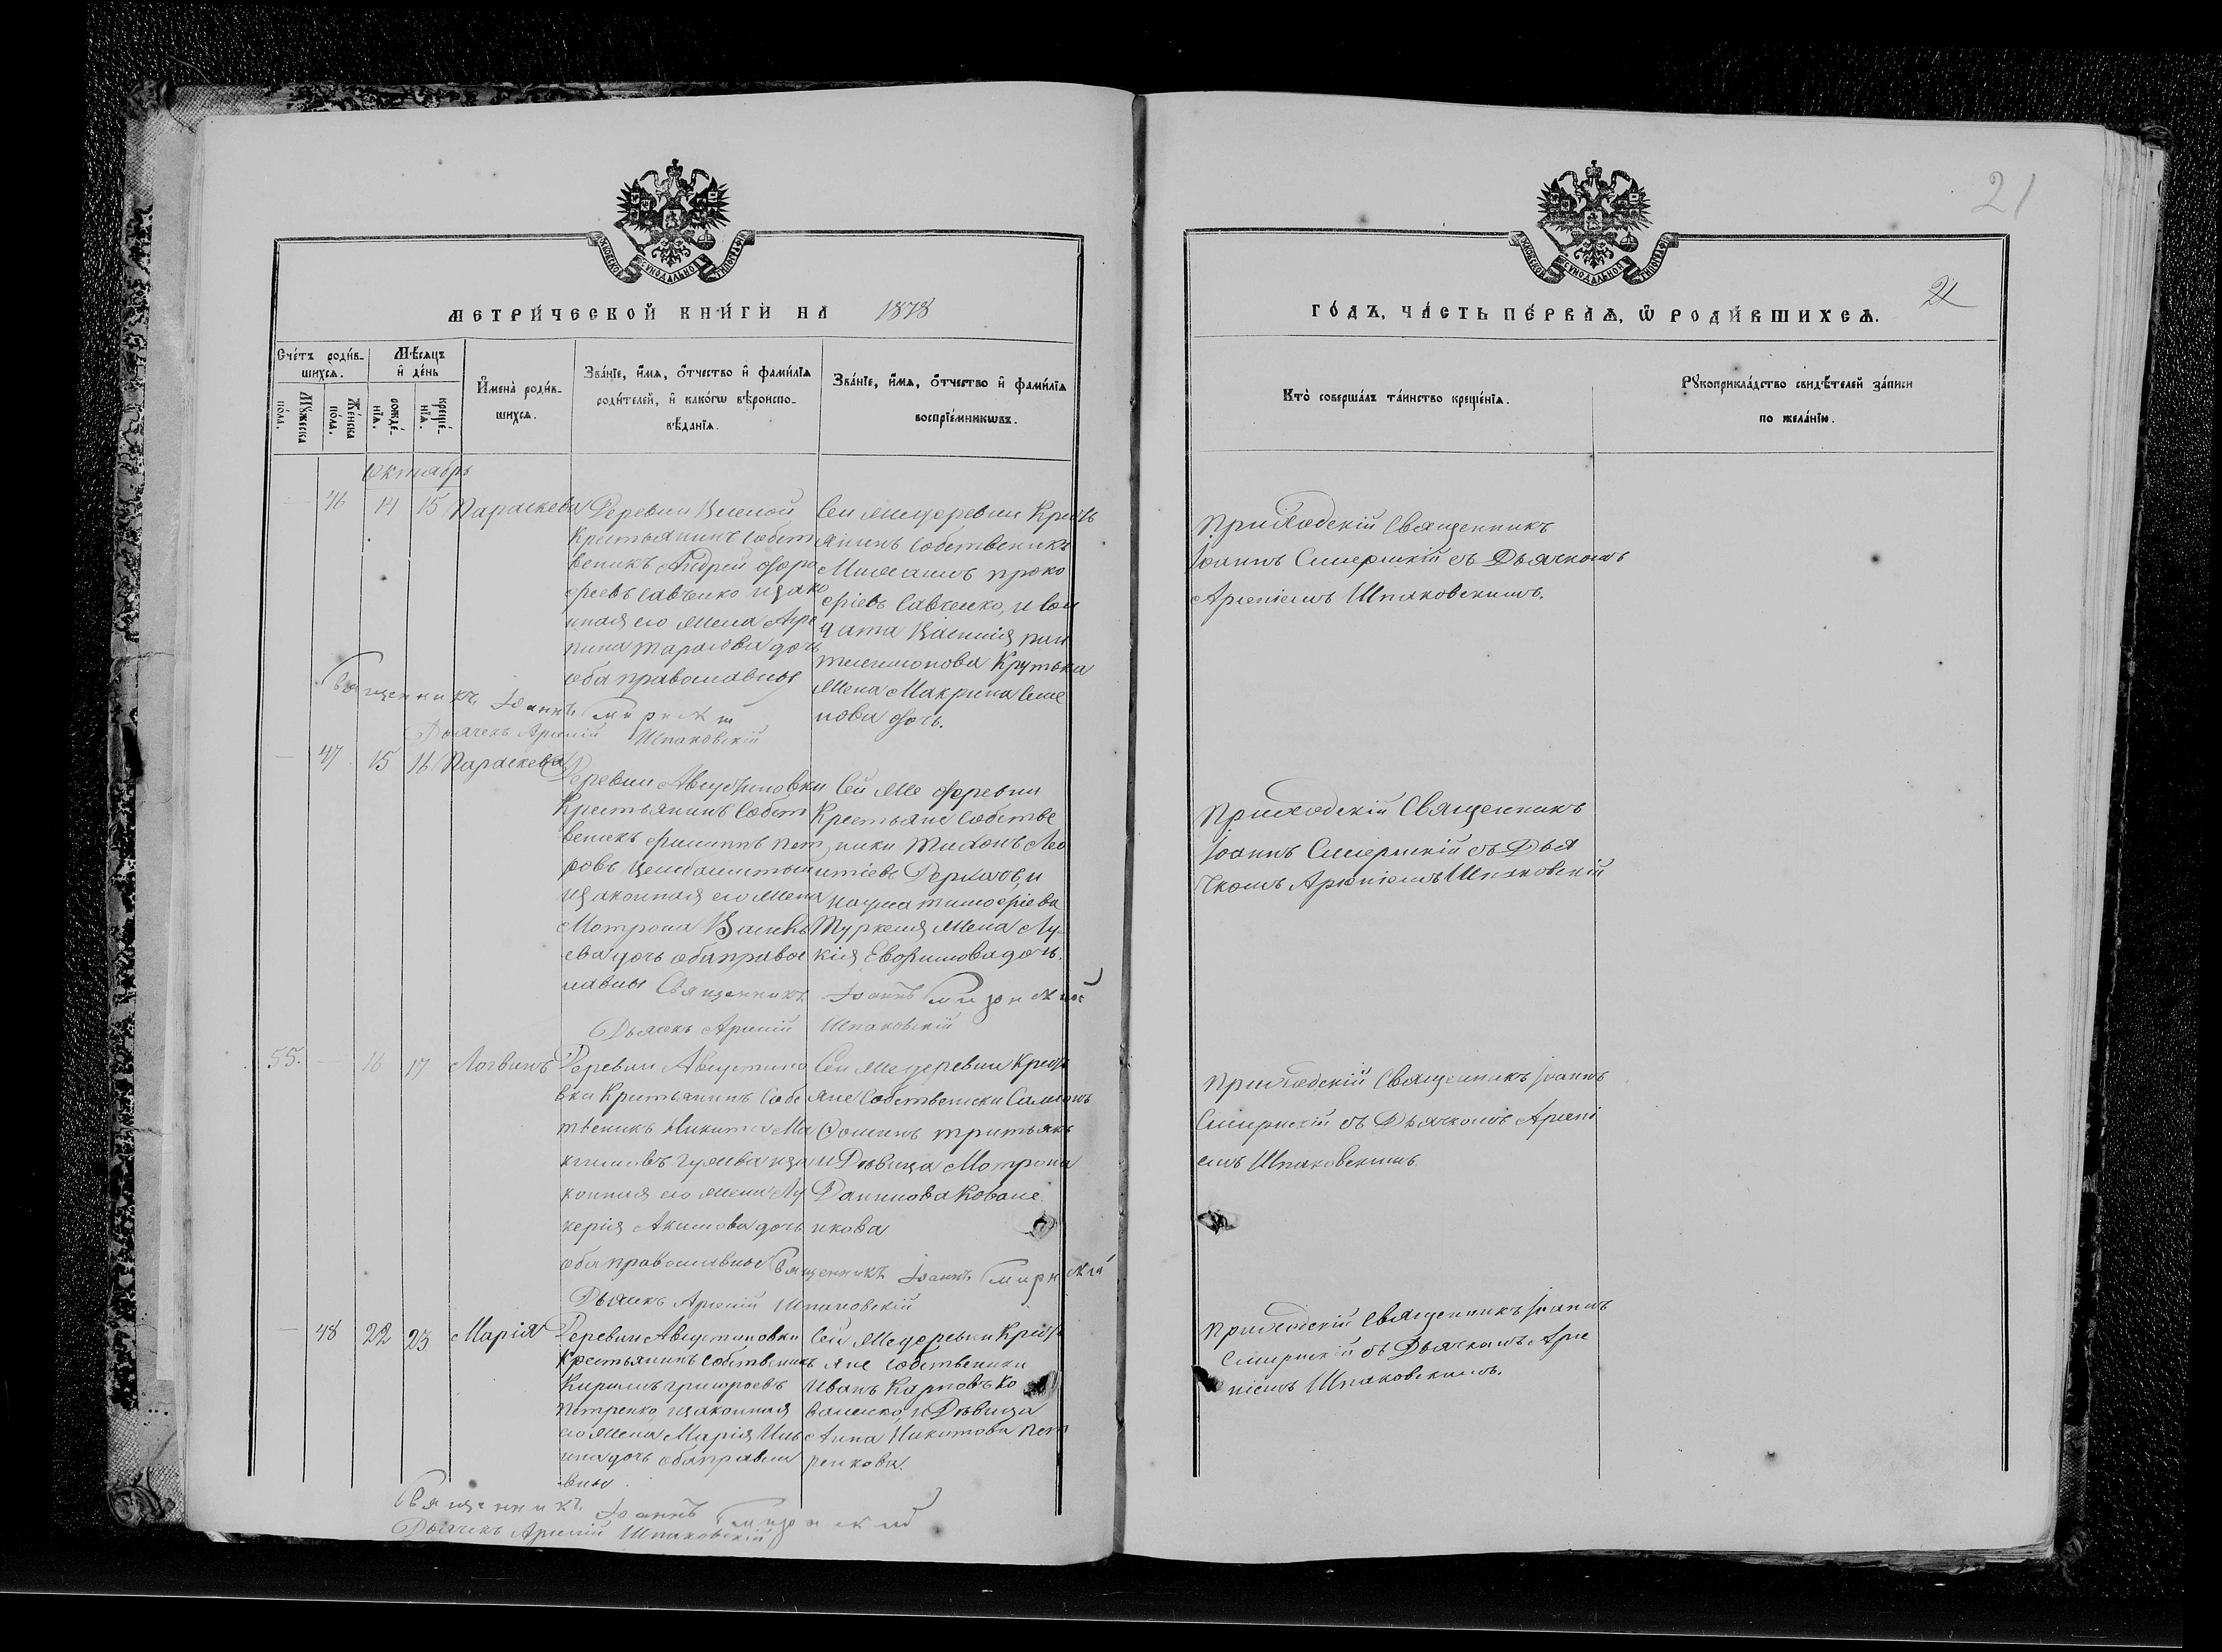 21
МЕТРИ́ЧЕСКОЙ КНИ́ГИ НА 1878
ГО́ДЪ, ЧА́СТЬ ПЕ́РВАѦ, Ѡ҆ РОДИ́ВШИХСѦ.
21
МОСКОВСКОЙ СѴНОДАЛЬНОЙ ТИПОГРАФІИ
МОСКОВСКОЙ СѴНОДАЛЬНОЙ ТИПОГРАФІИ
Сче́тъ роди́в-
шихсѧ.
Мꙋ́жеска по́ла.
Же́нска по́ла.
Мѣ́сѧцъ
и҆ де́нь
рожде́-
нїѧ.
креще́-
нїѧ.
И҆мена̀ роди́в-
шихсѧ.
Зва́нїе, и҆́мѧ, о҆́тчество и҆ фами́лїѧ
роди́телей, и҆ како́гѡ вѣроиспо-
вѣ́данїѧ.
Зва́нїе, и҆́мѧ, о҆́тчество и҆ фами́лїѧ
воспрїе́мникѡвъ.
Кто̀ соверша́лъ та́инство креще́нїѧ.
Рꙋкоприкла́дство свидѣ́телей за́писи
по жела́нїю.
Октябрь
— 46 14 15 Параскева
Деревни
Крестьянинъ собст
веникъ Андрей
Савченко и зако
нная его жена Агре
пина Тарасова дочь
оба православные
Сей же деревни Кресть
янинъ собственикъ
Проко
фіевъ Савченко, и Сол
дата Василія пан
телемонова Крутька
жена Макрина Семе
нова дочь.
Приходскій Священникъ
Іоаннъ Смирнскій съ Дьячкомъ
Арсеніемъ Шпаковскимъ.
Священникъ Іоаннъ
Дьячекъ Арсеній Шпаковскій
— 47 15 16 Параскева
Деревни Августиновки
Крестьянинъ Собст
веникъ Филиппъ Пет
ровъ
и законная его жена
Мотрона Василь
ева дочь оба правос
лавные
Сей же деревни
Крестьяне Собстве
ники Тихонъ Лео
нтіевъ и
Наума Тимофіева
жена Лу
кія Евфимова дочь.
Приходскій Священникъ
Іоаннъ Смирнскій съ Дья
чкомъ Арсеніемъ Шпаковскій
Священникъ Іоаннъ
Дьячекъ Арсеній Шпаковскій
55. — 16 17 Логвинъ
Деревни Августино
вки Крестьянинъ Собс
твеникъ Никита Ма
ксимовъ и за
конная его жена Лу
керія Акимова дочь
оба православные
Сей же деревни Кресть
яне Собственики
Фоминъ Третьякъ
и Дѣвица Мотрона
Данилова Ковале
нкова
Приходскій Священникъ Іоаннъ
Смирнскій съ Дьячкомъ Арсені
емъ Шпаковскимъ
Священникъ Іоаннъ
Дьячекъ Арсеній Шпаковскій
— 48 22 23 Марія
Деревни Августиновки
Крестьянинъ собственикъ
Кирилъ Григорьевъ
Петренко, и законная
его жена Марія Иль
ина дочь оба правосла
вные
Сей же деревни Кресть
яне собственики
Иванъ Карповъ Ко
валенко, и Дѣвица
Анна Никитова Пет
ренкова.
Приходскій Священникъ Іоаннъ
Смирнскій съ Дьячкомъ Арсе
ніемъ Шпаковскимъ.
Священникъ Іоаннъ
Дьячекъ Арсеній Шпаковскій